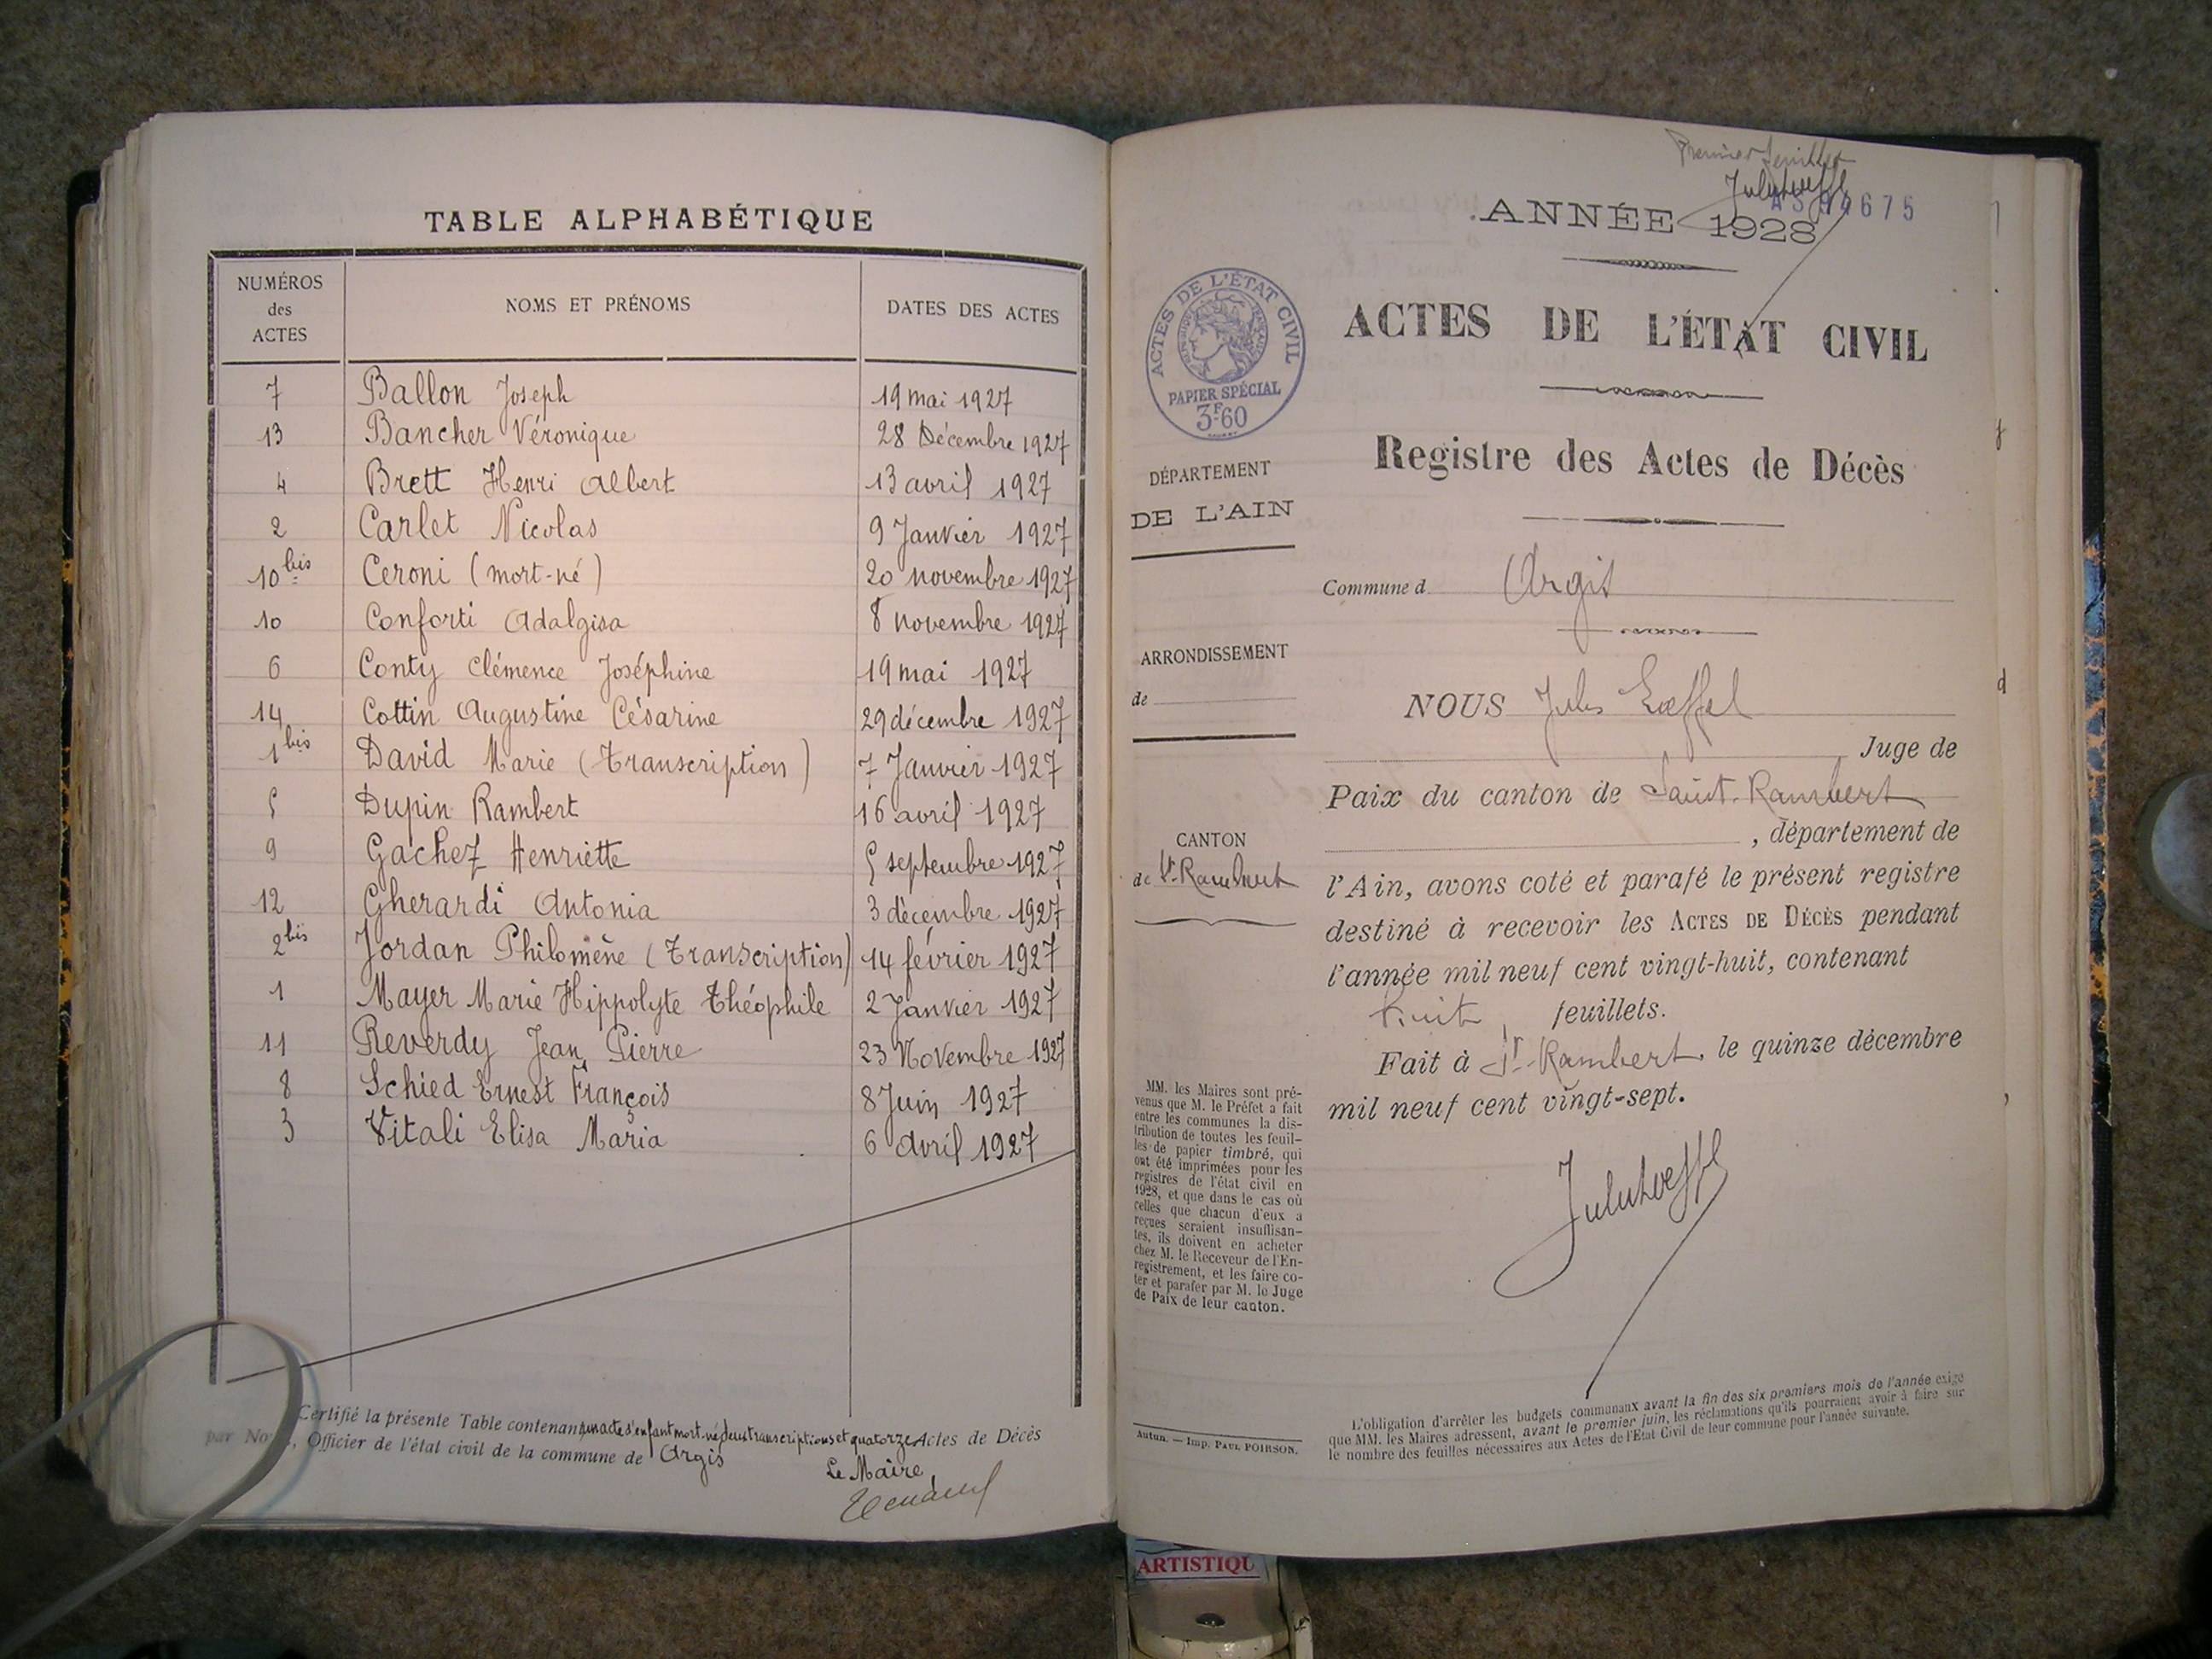 TABLE ALPHABÉTIQUE
NUMÉROS des ACTES NOMS ET PRÉNOMS DATES DES ACTES
7 Ballon Joseph 19 mai 1927
13 Bancher Véronique 28 Décembre 1927
4 Brett Henri Albert 13 avril 1927
2 Carlet Nicolas 9 Janvier 1927
10 bis Ceroni (mort-né) 20 novembre 1927
10 Conforti Adalgisa 8 novembre 1927
6 Conty Clémence Joséphine 19 mai 1927
14 Cottin Augustine Césarine 29 décembre 1927
1 bis David Marie (Transcription) 7 Janvier 1927
5 Dupin Rambert 16 avril 1927
9 Gachez Henriette 5 septembre 1927
12 Gherardi Antonia 3 décembre 1927
2 bis Jordan Philomène (Transcription) 14 février 1927
1 Mayer Marie Hippolyte Théophile 2 Janvier 1927
11 Reverdy Jean Pierre 23 Novembre 1927
8 Schied Ernest François 8 Juin 1927
3 Vitali Elisa Maria 6 Avril 1927
Certifié la présente Table contenant un acte d'enfant mort-né deux transcriptions et quatorze Actes de Décès
par Nous, Officier de l'état civil de la commune de Argis
Le Maire,
Premier feuillet
675
ANNÉE 1928
ACTES DE L'ÉTAT CIVIL
PAPIER SPÉCIAL
3F60
ACTES DE L'ÉTAT CIVIL
Registre des Actes de Décès
DÉPARTEMENT
DE L'AIN
Commune d Argis
ARRONDISSEMENT
de
NOUS Jules Lœffel
Juge de
Paix du canton de Saint-Rambert
, département de
CANTON
de St-Rambert
l'Ain, avons coté et parafé le présent registre
destiné à recevoir les ACTES DE DÉCÈS pendant
l'année mil neuf cent vingt-huit, contenant
huit, feuillets.
Fait à St-Rambert, le quinze décembre
mil neuf cent vingt-sept.
MM. les Maires sont pré-
venus que M. le Préfet a fait
entre les communes la dis-
tribution de toutes les feuil-
les de papier timbré, qui
ont été imprimées pour les
registres de l'état civil en
1928, et que dans le cas où
celles que chacun d'eux a
reçues seraient insuffisan-
tes, ils doivent en acheter
chez M. le Receveur de l'En-
registrement, et les faire co-
ter et parafer par M. le Juge
de Paix de leur canton.
Autun. — Imp. PAUL POIRSON.
L'obligation d'arrêter les budgets communaux avant la fin des six premiers mois de l'année exige
que MM. les Maires adressent, avant le premier juin, les réclamations qu'ils pourraient avoir à faire sur
le nombre des feuilles nécessaires aux Actes de l'État Civil de leur commune pour l'année suivante.
ARTISTIQU